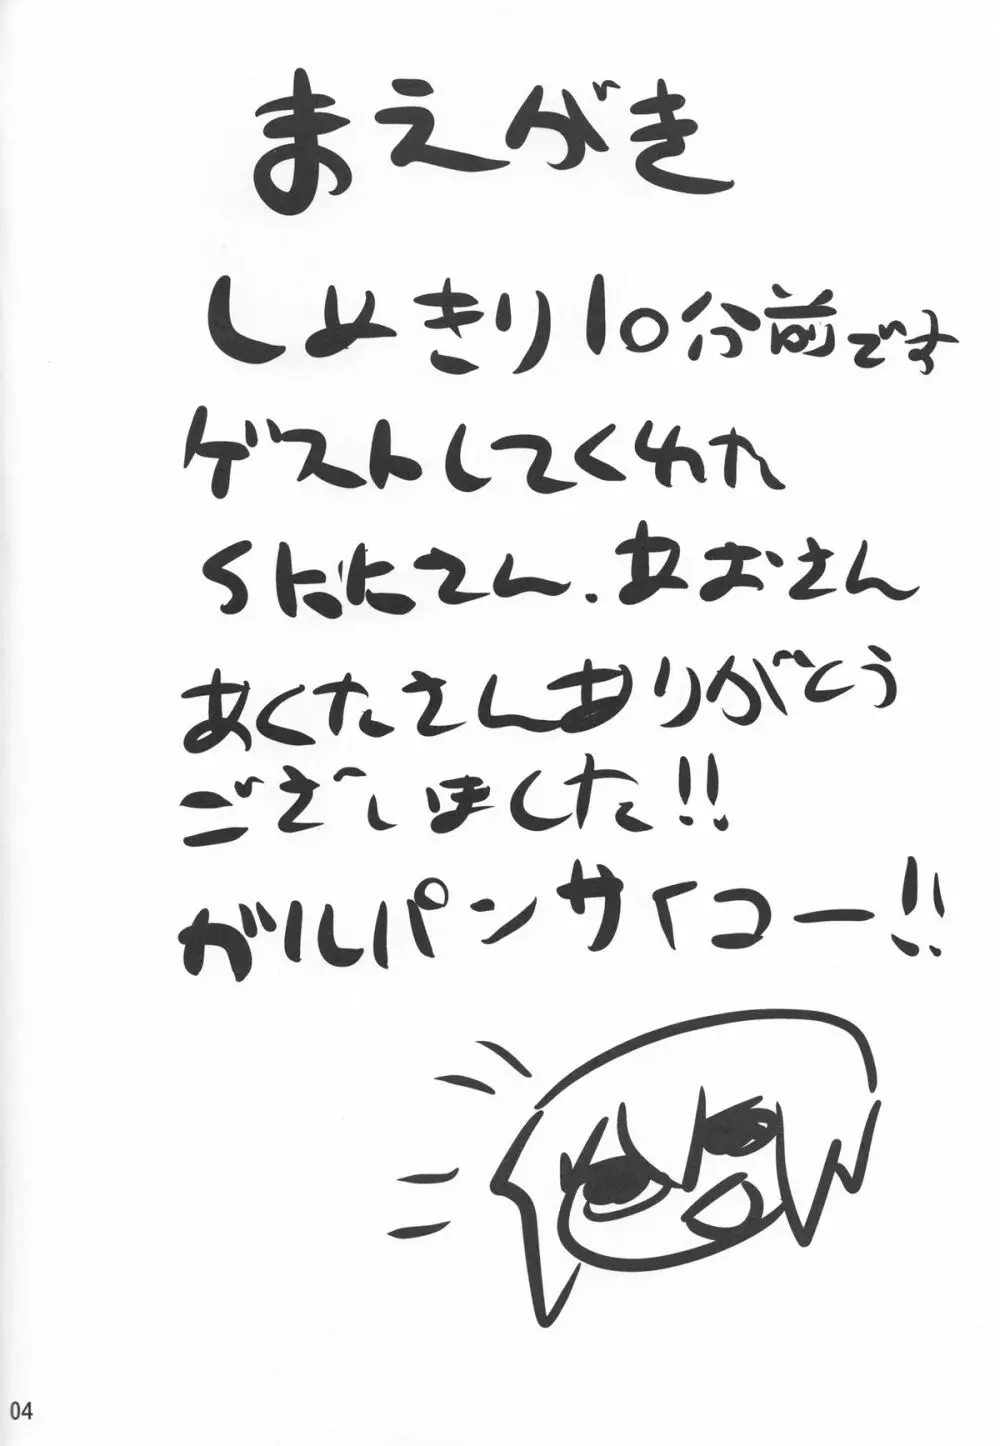 まえがき
しめきり10分前です
ゲストしてくれた
Sたたさん、あおさん
あくたさんありがとう
ございました!!
ガルパンサイコー!!
04